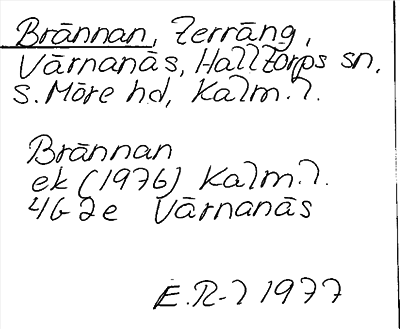 Brännan, Terräng,
Värnanäs, Halltorps sn,
S. Möre hd, Kalm. l.
Brännan
ek (1976) Kalm. l.
4G 2e Värnanäs
E.R-l 1977